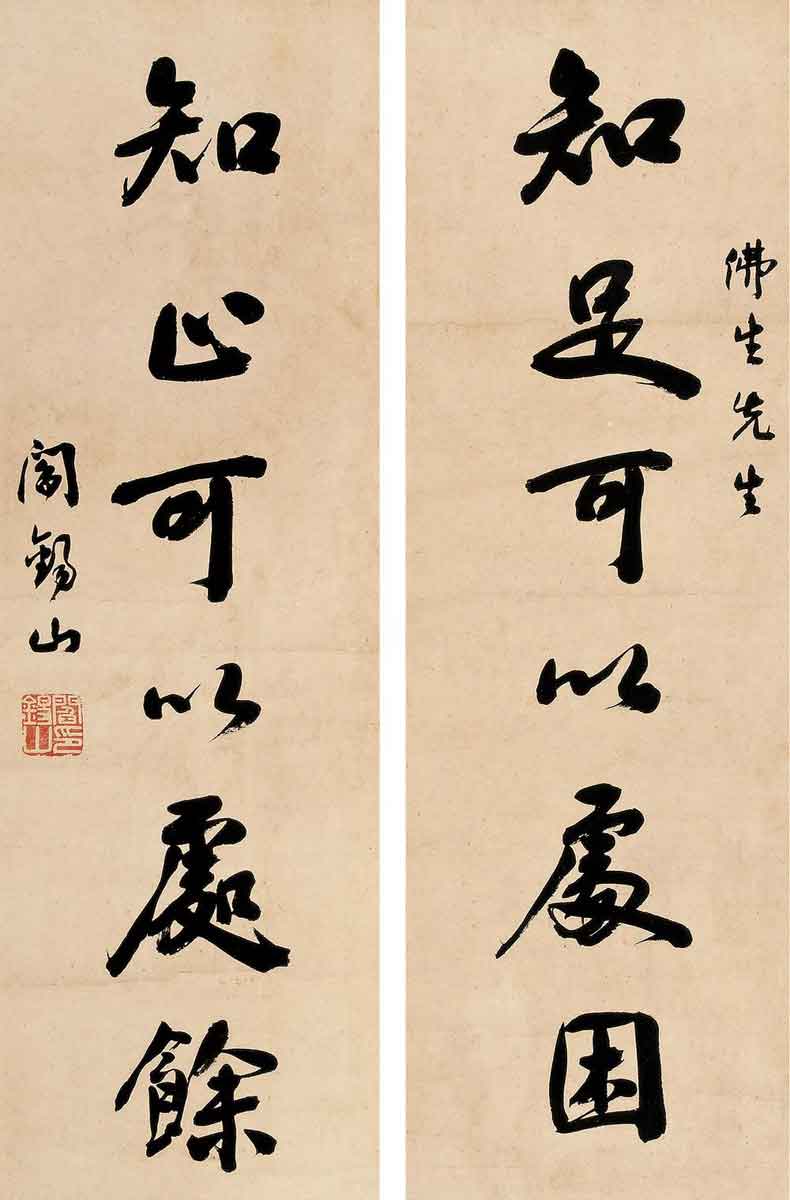 佛生先生
知足可以處困
知止可以處餘
閻錫山
閻印錫山